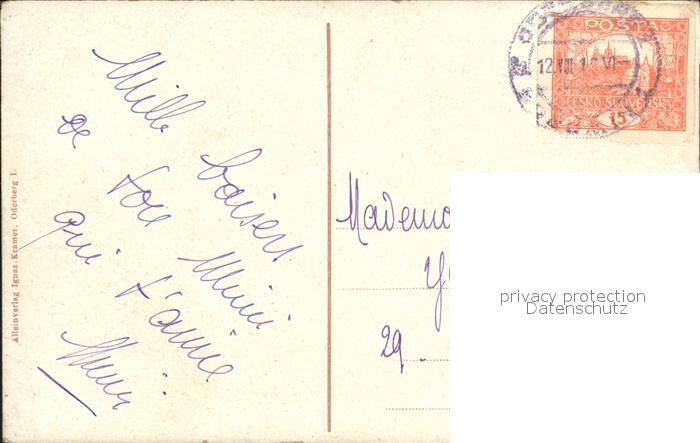 Mille baisers
de ton Mimi
qui t'aime
Mimi
Alleinverlag Ignaz Kramer, Oderberg I.
POŠTA
ČESKO·SLOVENSKÁ
15
12.VII
Madem
29.
privacy protection
Datenschutz